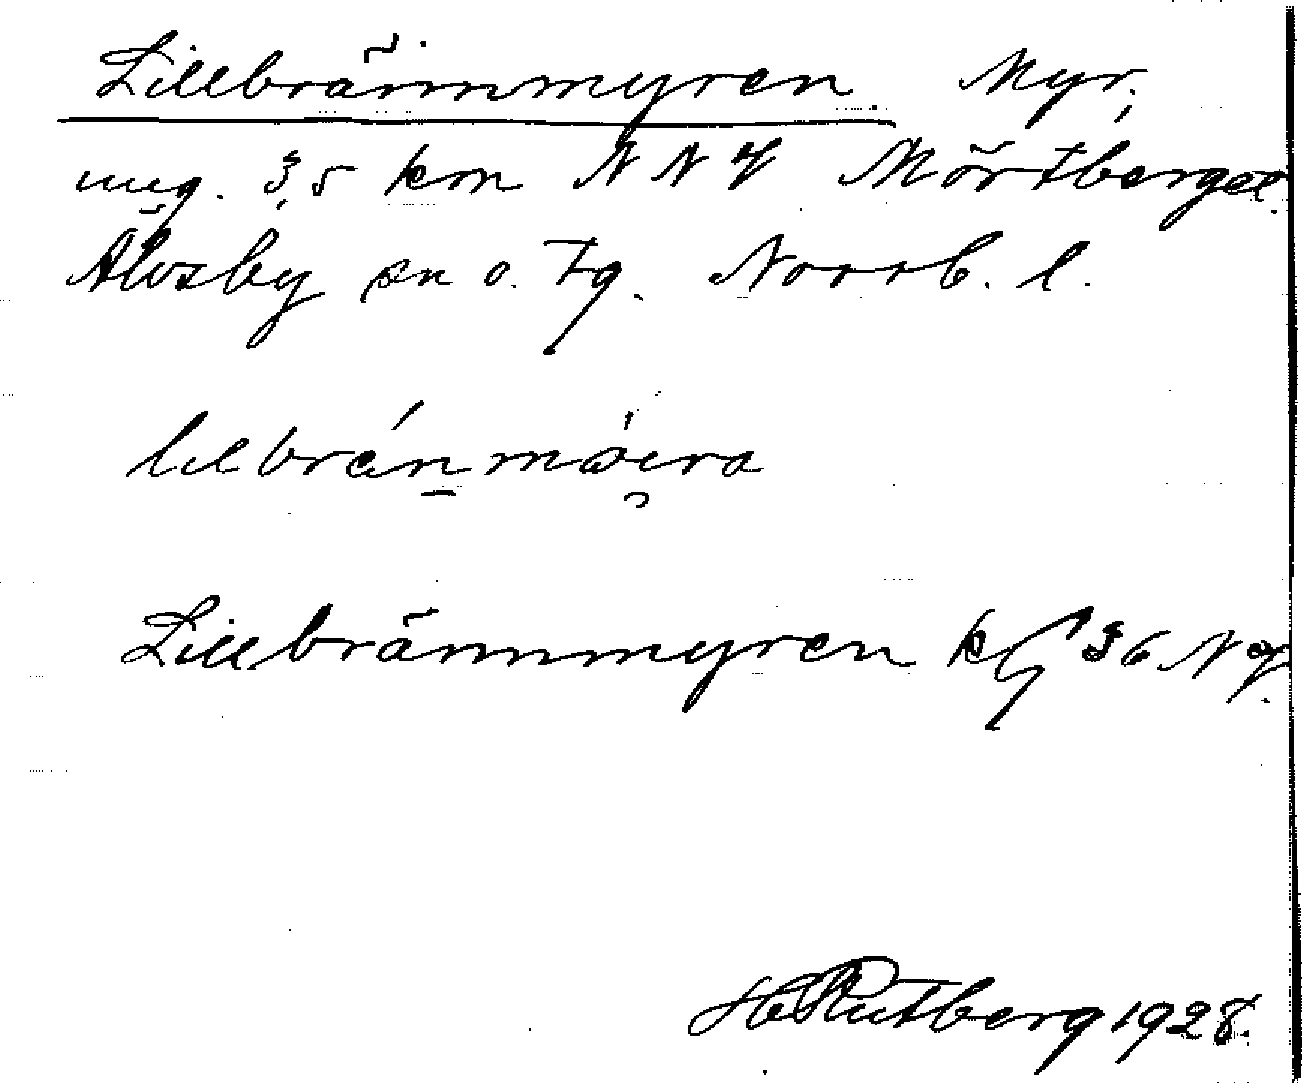 Lillbrännmyren Myr,
ung. 3,5 km NNV Mörtberget.
Älvsby sn o. tg. Norrb. l.
Lillbrännmyren
H Rutberg 1928.